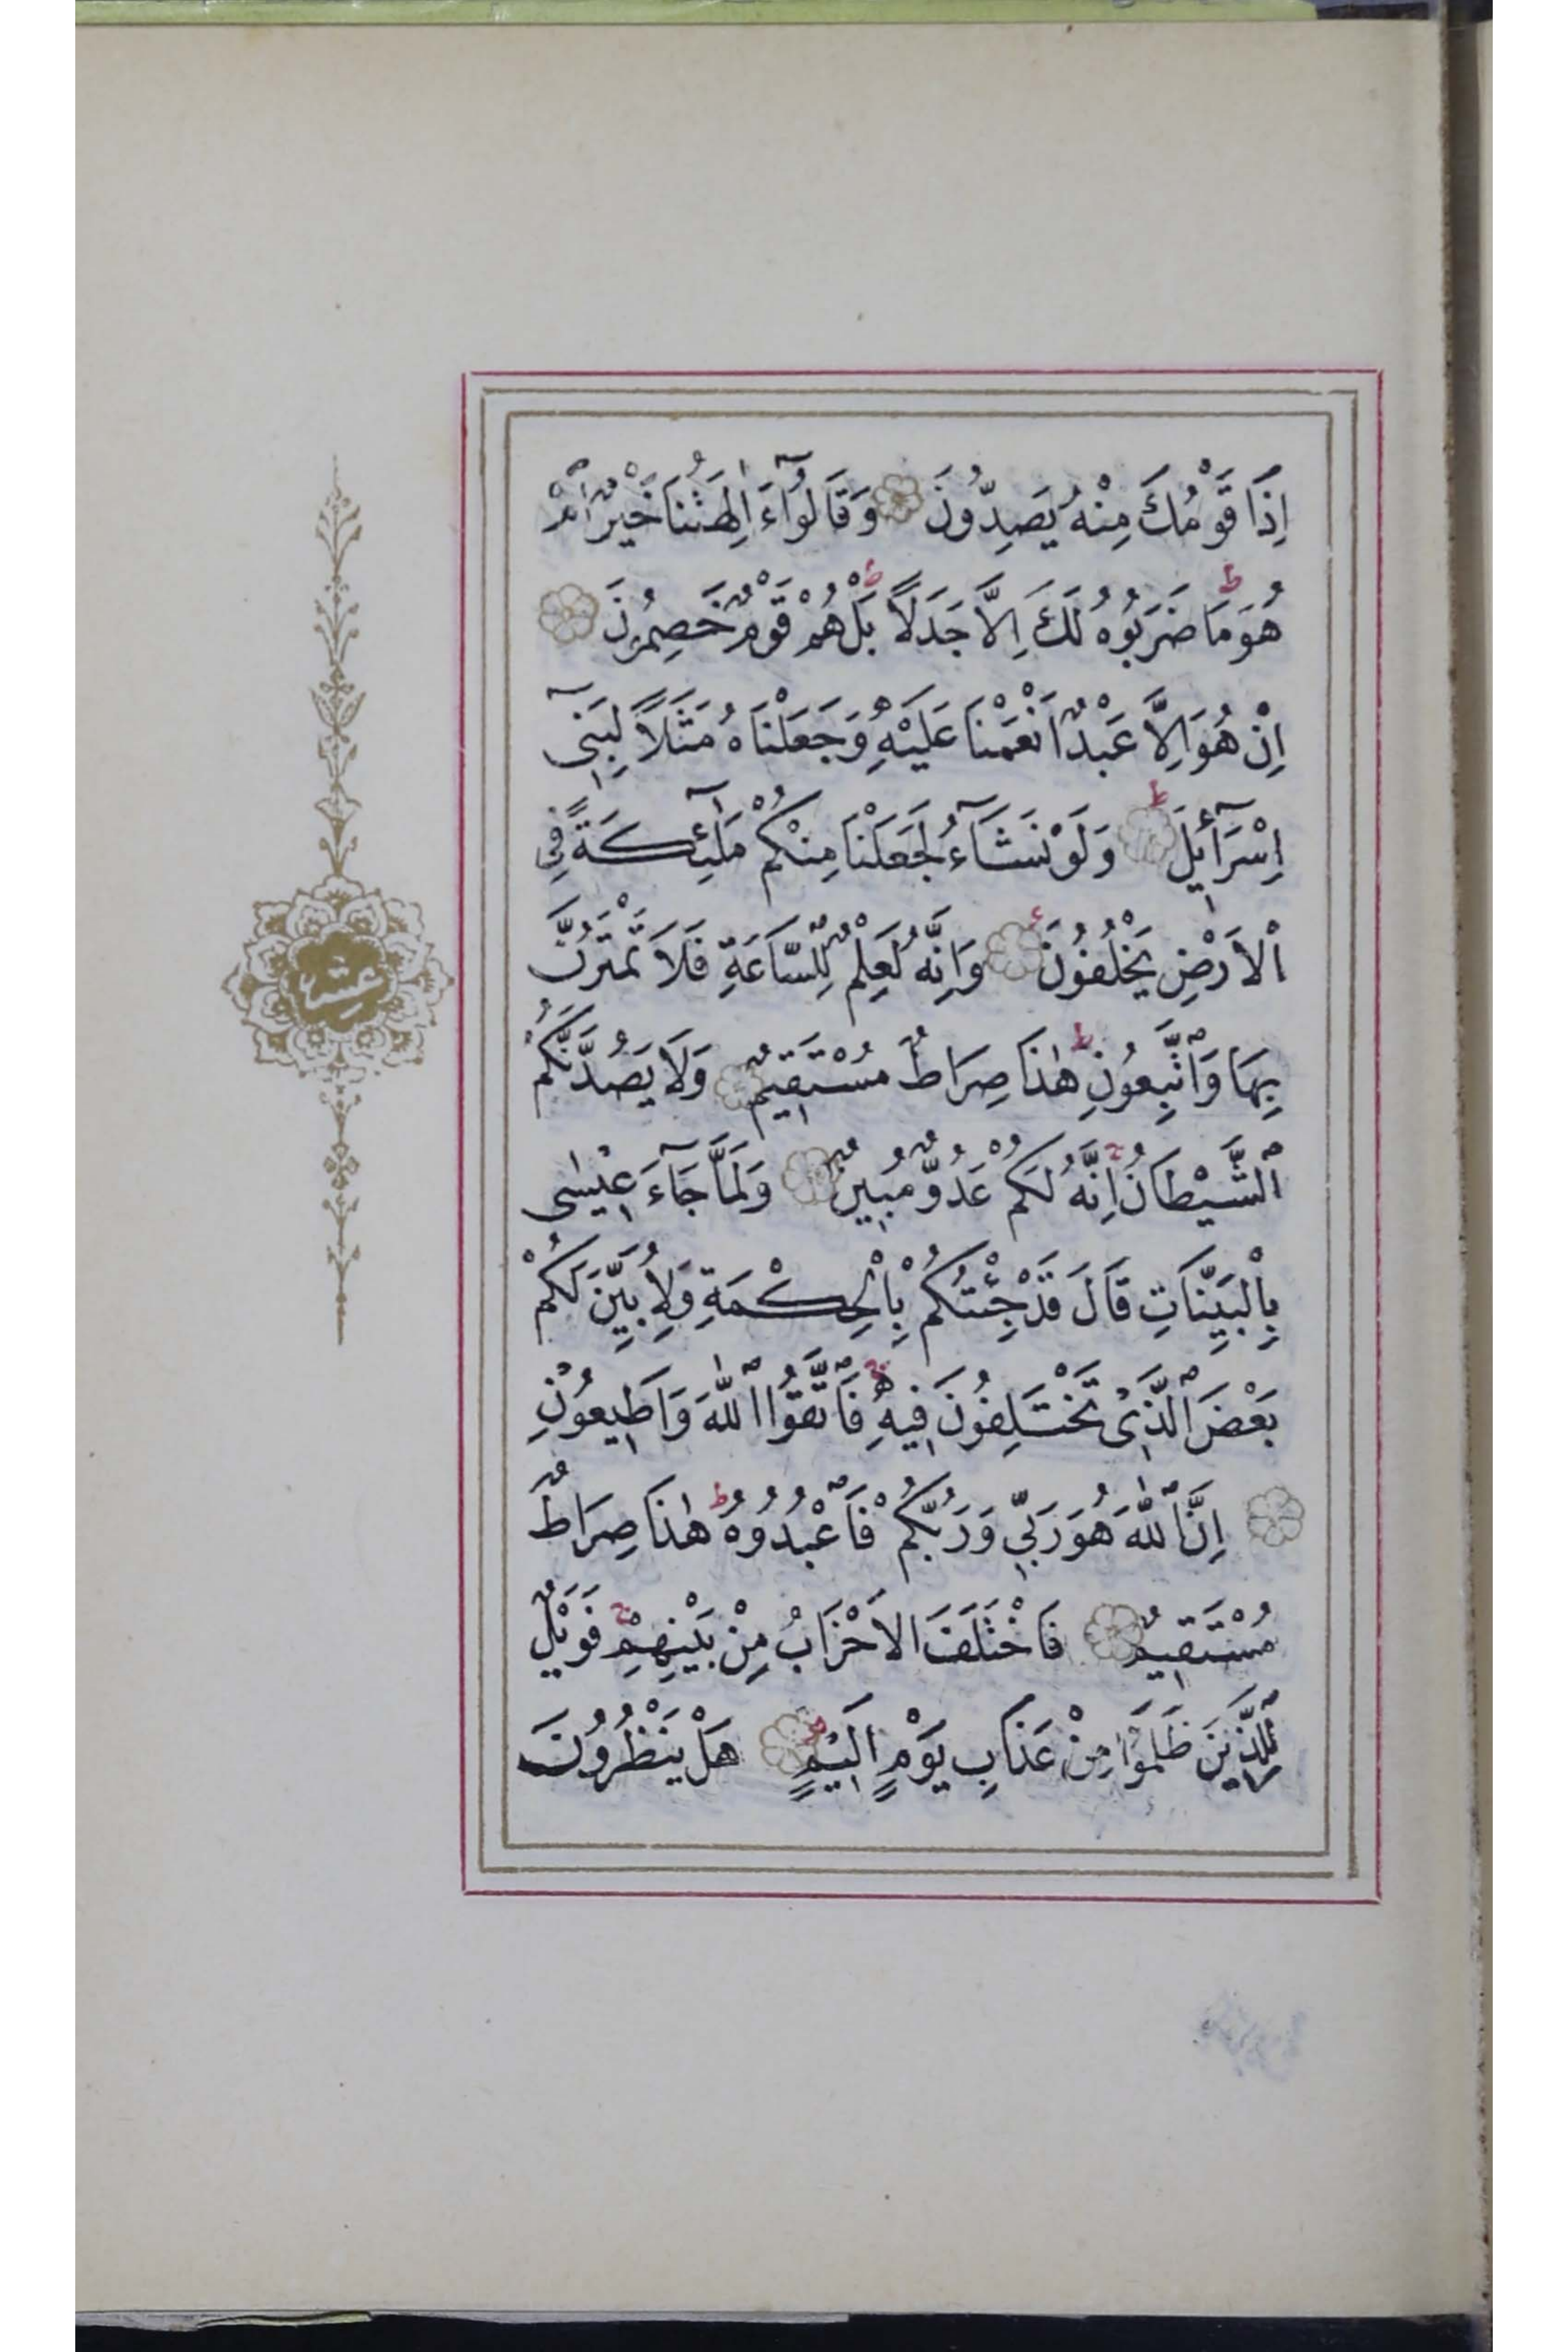 اِذَا قَوْمُكَ مِنْهُ يَصِدُّونَ وَقَالُوٓا ءَاٰلِهَتُنَا خَيْرٌ اَمْ
هُوَ ط مَا ضَرَبُوهُ لَكَ اِلَّا جَدَلًا ط بَلْ هُمْ قَوْمٌ خَصِمُونَ
اِنْ هُوَ اِلَّا عَبْدٌ اَنْعَمْنَا عَلَيْهِ وَجَعَلْنَاهُ مَثَلًا لِبَنٖٓى
اِسْرَٓائٖلَ ط وَلَوْ نَشَٓاءُ لَجَعَلْنَا مِنْكُمْ مَلٰٓئِكَةً فِى
الْاَرْضِ يَخْلُفُونَ وَاِنَّهُ لَعِلْمٌ لِلسَّاعَةِ فَلَا تَمْتَرُنَّ
بِهَا وَاتَّبِعُونِ ط هٰذَا صِرَاطٌ مُسْتَقٖيمٌ وَلَا يَصُدَّنَّكُمُ
الشَّيْطَانُ ج اِنَّهُ لَكُمْ عَدُوٌّ مُبٖينٌ وَلَمَّا جَٓاءَ عٖيسٰى
بِالْبَيِّنَاتِ قَالَ قَدْ جِئْتُكُمْ بِالْحِكْمَةِ وَلِاُبَيِّنَ لَكُمْ
بَعْضَ الَّذٖى تَخْتَلِفُونَ فٖيهِ ج فَاتَّقُوا اللّٰهَ وَاَطٖيعُونِ
اِنَّ اللّٰهَ هُوَ رَبّٖى وَرَبُّكُمْ فَاعْبُدُوهُ ط هٰذَا صِرَاطٌ
مُسْتَقٖيمٌ فَاخْتَلَفَ الْاَحْزَابُ مِنْ بَيْنِهِمْ ج فَوَيْلٌ
لِلَّذٖينَ ظَلَمُوا مِنْ عَذَابِ يَوْمٍ اَلٖيمٍ هَلْ يَنْظُرُونَ